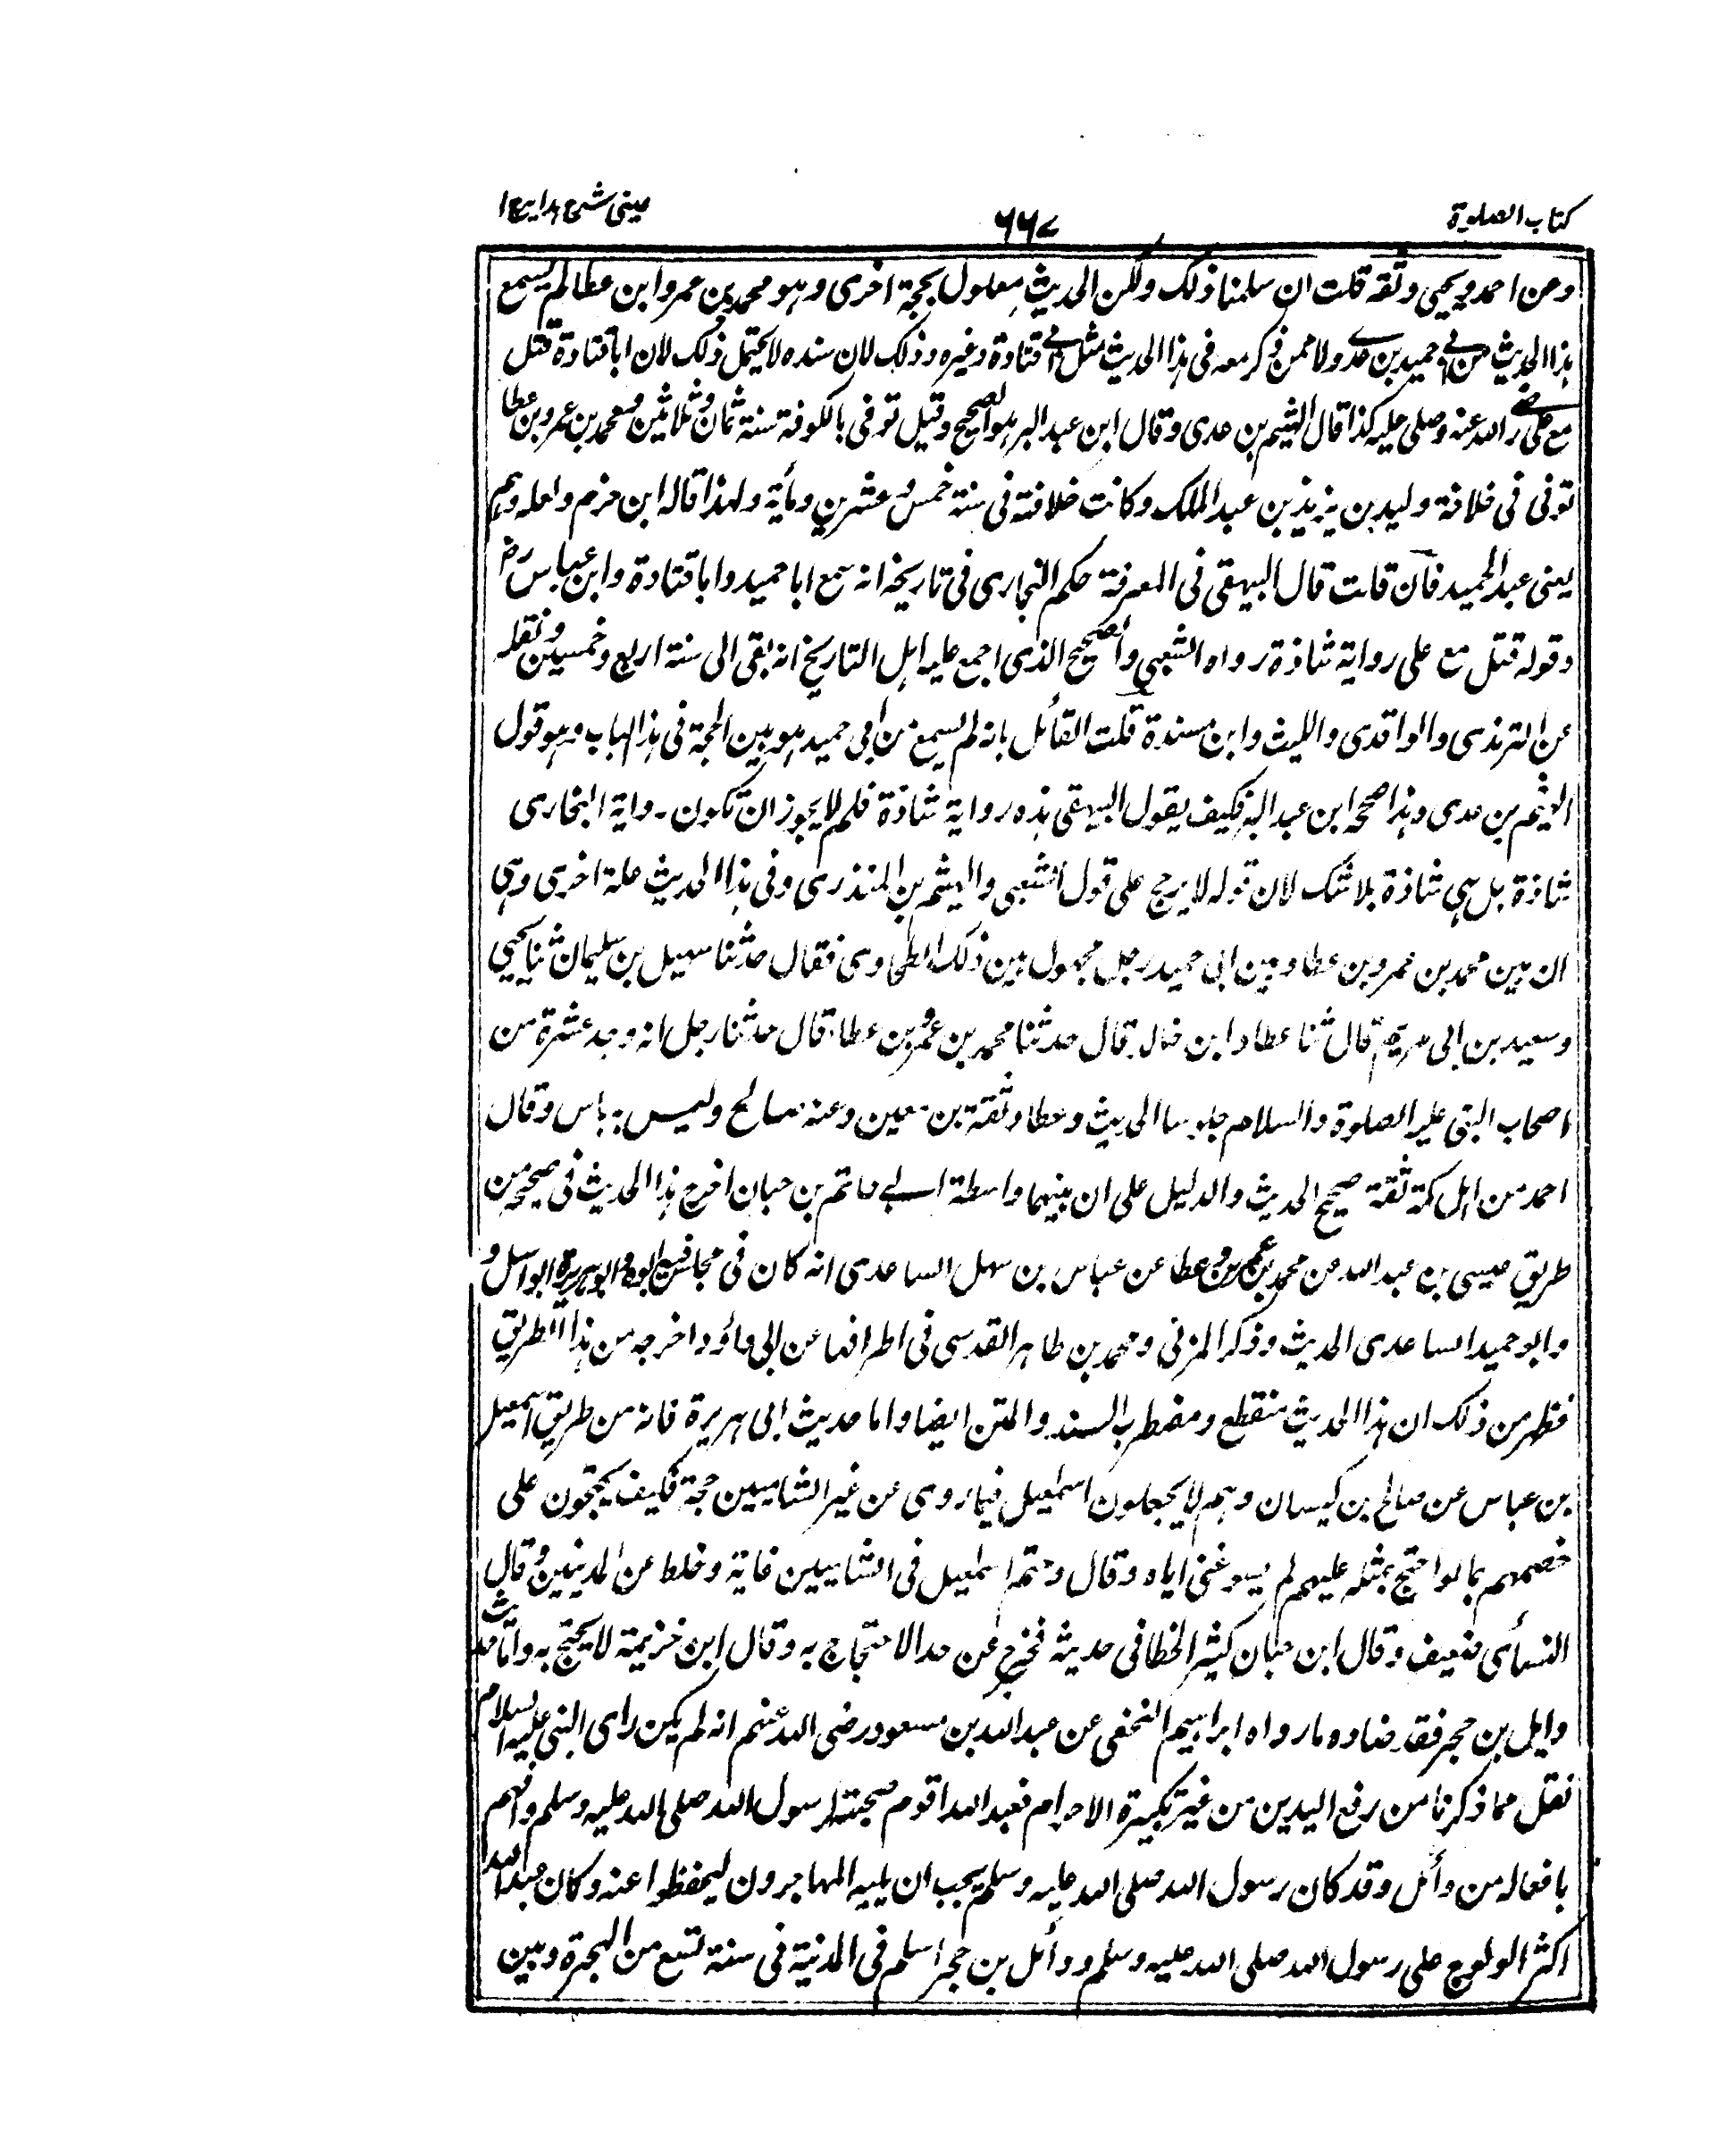 كتاب الصلوة
٦٦٧
عينى شرح هدايه ج ١
وعن احمد ويحيى وثقه قلت ان سلمنا ذلك ولكن الحديث معلول بحجة اخرى وهو محمد بن عمرو ابن عطا لم يسمع
هذا الحديث من ابي حميد بن ولا ممن ذكر معه فى هذا الحديث مثل ابي قتادة وغيره وذلك لان سنده لا يحتمل ذلك لان ابا قتادة قتل
مع على رضي الله عنه وصلى عليه كذا قال الهيثم بن عدى وقال ابن عبد البر هو الصحيح وقيل توفى بالكوفة سنة ثمان وثلاثين ومحمد بن عمرو بن عطا
توفى فى خلافة وليد بن يزيد بن عبد الملك وكانت خلافته فى سنة خمس وعشرين ومأية ولهذا قاله ابن حزم ولعله وهم
يعنى عبد الحميد فان قلت قال البيهقى فى المعرفة حكم البخارى فى تاريخه انه سمع ابا حميد وابا قتادة وابن عباس رض
وقوله قتل مع على رواية شاذة رواه الشعبي والصحيح الذى اجمع عليه اهل التاريخ انه بقى الى سنة اربع وخمسين ونقله
عن الترمذى والواقدى والليث وابن مندة قلت القائل بانه لم يسمع من ابي حميد هو بين الحجة فى هذا الباب وهو قول
الهيثم بن عدى وهذا صححه ابن عبد البر فكيف يقول البيهقى هذه رواية شاذة فلم لا يجوز ان تكون رواية البخارى
شاذة بل هي شاذة بلا شك لان قوله لا يرجح على قول الشعبي والهيثم بن المنذرى وفى هذا الحديث علة اخرى وهى
ان بين محمد بن عمرو بن عطا وبين ابى حميد رجل مجهول بين ذلك الطحاوى فقال حدثنا سهيل بن سليمان ثنا يحيى
وسعيد بن ابى مريم قال ثنا عطاء ابن خالد قال حدثنا محمد بن عمرو بن عطاء قال حدثنا رجل انه وجد عشرة من
اصحاب النبى عليه الصلوة والسلام جلوسا الحديث وعطا وثقة بن معين وعنه صالح وليس به باس وقال
احمد من اهل مكة ثقة صحيح الحديث والدليل على ان بينهما واسطة ابي حاتم بن حبان اخرج هذا الحديث فى صحيحه من
طريق عيسى بن عبد الله من محمد بن عمرو بن عطا عن عباس بن سهل الساعدى انه كان فى مجلس ابوه وابو هريرة وابو اسل و
وابو حميد الساعدى الحديث وذكر المزنى ومحمد بن طاهر القدسى فى اطرافها عن ابى داؤد اخرجه من هذا الطريق
فظهر من ذلك ان هذا الحديث منقطع ومضطرب السند والمتن ايضا واما حديث ابى هريرة فانه من طريق اسمعيل
بن عباس عن صالح بن كيسان وهم لا يجعلون اسمعيل فيما روى عن غير الشاميين حجة فكيف يحتجون على
خصمهم بما لو احتج بمثله عليهم لم يسوغنى اياه وقال اسمعيل فى الشاميين غاية وخلط عن المدينين وقال
النسأى ضعيف وقال ابن حبان كثير الخطا فى حديثه فخرج عن حد الاحتجاج به وقال ابن خزيمة لا يحتج به واما حديث
وايل بن حجر فقد ضاده ما رواه ابراهيم النخعى عن عبد الله بن مسعود رضى الله عنهم انه لم يكن راى النبى عليه السلام
نقل مما ذكرنا من رفع اليدين من غير تكبيرة الاحرام فعبد الله اقوم صحبته لرسول الله صلى الله عليه وسلم وافهم
بافعاله من وأئل وقد كان رسول الله صلى الله عليه وسلم يحب ان يليه المهاجرون ليحفظوا عنه وكان عبد الله
اكثر الولوج على رسول الله صلى الله عليه وسلم ووأئل بن حجر اسلم فى المدنية فى سنة تسع من الهجرة وبين